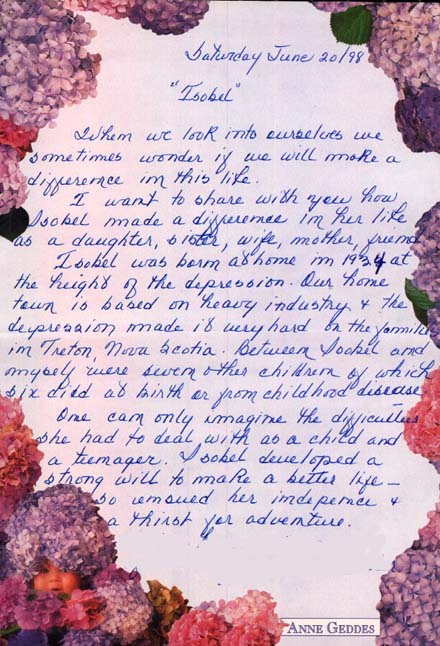 Saturday June 20/98
"Isobel"
When we look into ourselves we
sometimes wonder if we will make a
difference in this life.
I want to share with you how
Isobel made a difference in her life
as a daughter, sister, wife, mother, friend
Isobel was born at home in 1934 at
the height of the depression. Our home
town is based on heavy industry & the
depression made it very hard on the families
in Trenton, Nova Scotia. Between Isobel and
myself were seven other children of which
six died at birth or from childhood disease
One can only imagine the difficulties
she had to deal with as a child and
a teenager. Isobel developed a
strong will to make a better life —
so ensued her indepence &
a thirst for adventure.
ANNE GEDDES